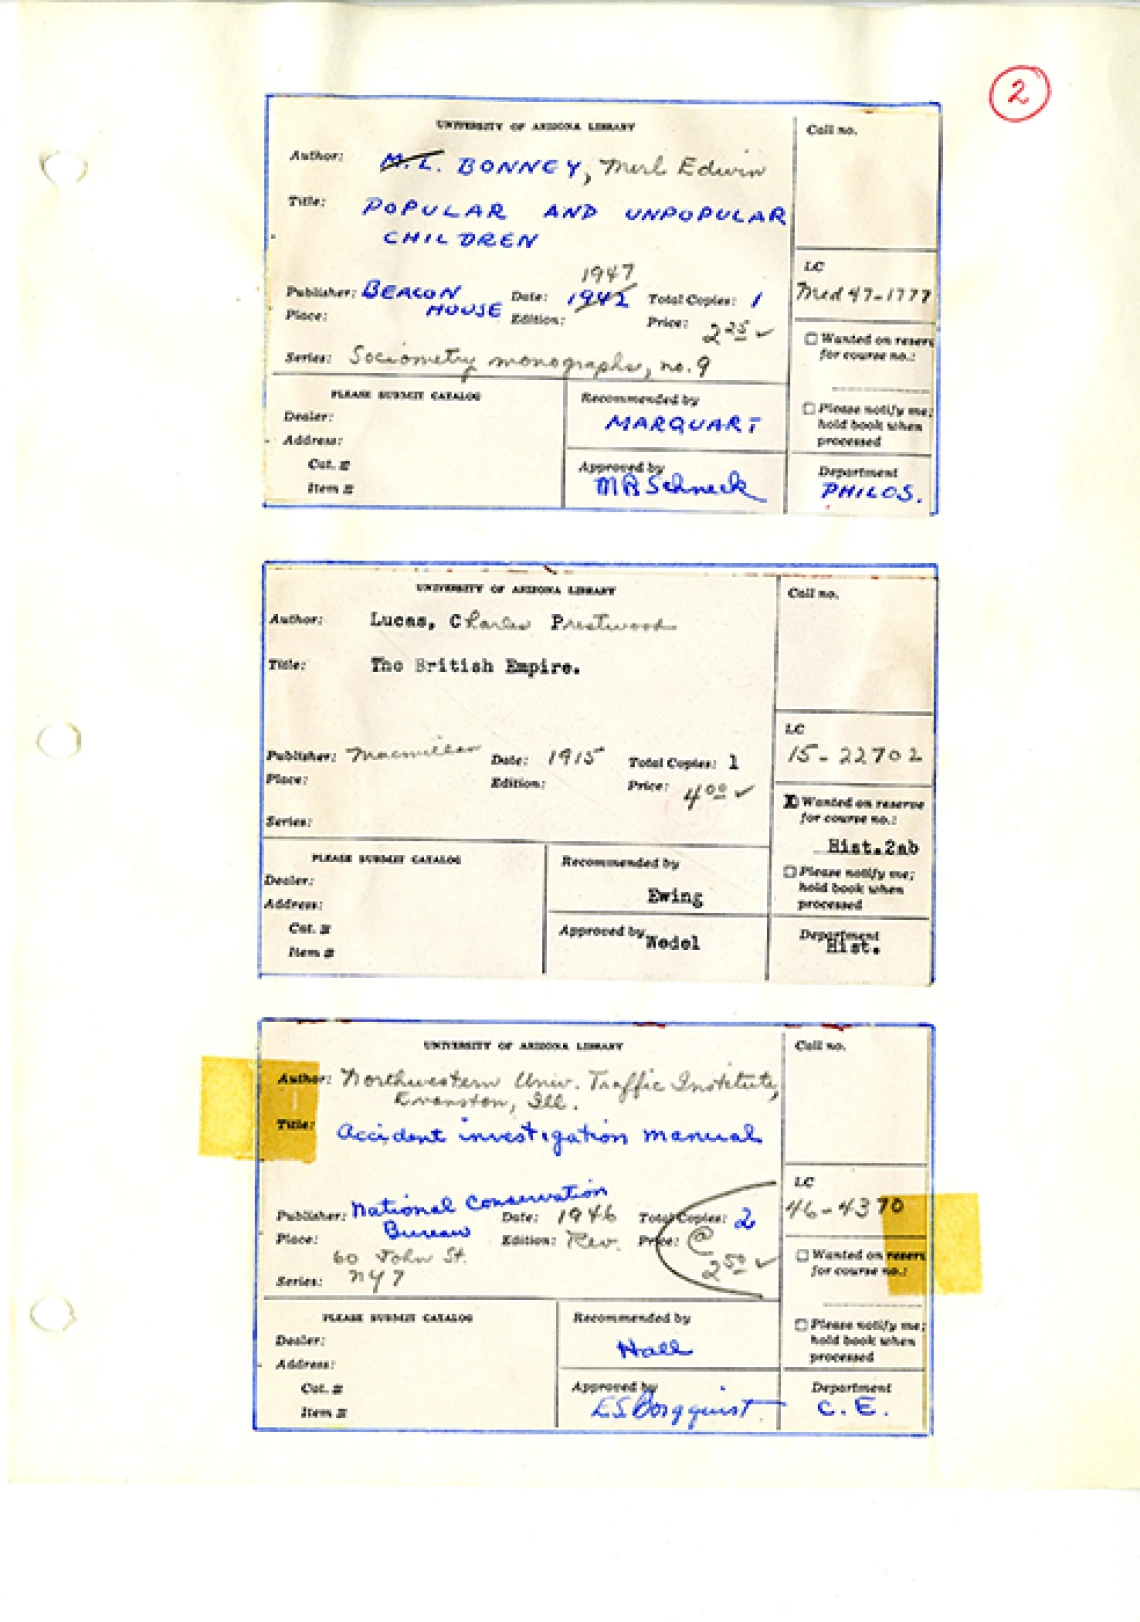 2
UNIVERSITY OF ARIZONA LIBRARY
Call no.
Author: M.L. BONNEY, Merl Edwin
Title: POPULAR AND UNPOPULAR
CHILDREN
1947
Publisher: BEACON Date: 1942 Total Copies: 1
HOUSE
Place: Edition: Price: 2 25 ✓
Series: Sociometry monographs, no. 9
LC
Med 47-1777
☐ Wanted on reserv
for course no.:
☐ Please notify me;
hold book when
processed
PLEASE SUBMIT CATALOG
Dealer:
Address:
Cat. #
Item #
Recommended by
MARQUART
Approved by
MR Schneck
Department
PHILOS.
UNIVERSITY OF ARIZONA LIBRARY
Call no.
Author: Lucas, Charles Prestwood
Title: The British Empire.
Publisher: Macmillan Date: 1915 Total Copies: 1
Place: Edition: Price: 4 00 ✓
Series:
LC
15-22702
☒ Wanted on reserve
for course no.:
Hist.2ab
☐ Please notify me;
hold book when
processed
PLEASE SUBMIT CATALOG
Dealer:
Address:
Cat. #
Item #
Recommended by
Ewing
Approved by Wedel
Department
Hist.
UNIVERSITY OF ARIZONA LIBRARY
Call no.
Author: Northwestern Univ. Traffic Institute,
Evanston, Ill.
Title: Accident investigation manual
Publisher: National Conservation
Bureau Date: 1946 Total Copies: 2
Place: Edition: Rev. Price: @
60 John St. 2 50 ✓
Series: NY 7
LC
46-4370
☐ Wanted on reserv
for course no.:
☐ Please notify me;
hold book when
processed
PLEASE SUBMIT CATALOG
Dealer:
Address:
Cat. #
Item #
Recommended by
Hall
Approved by
E S Borgquist
Department
C. E.